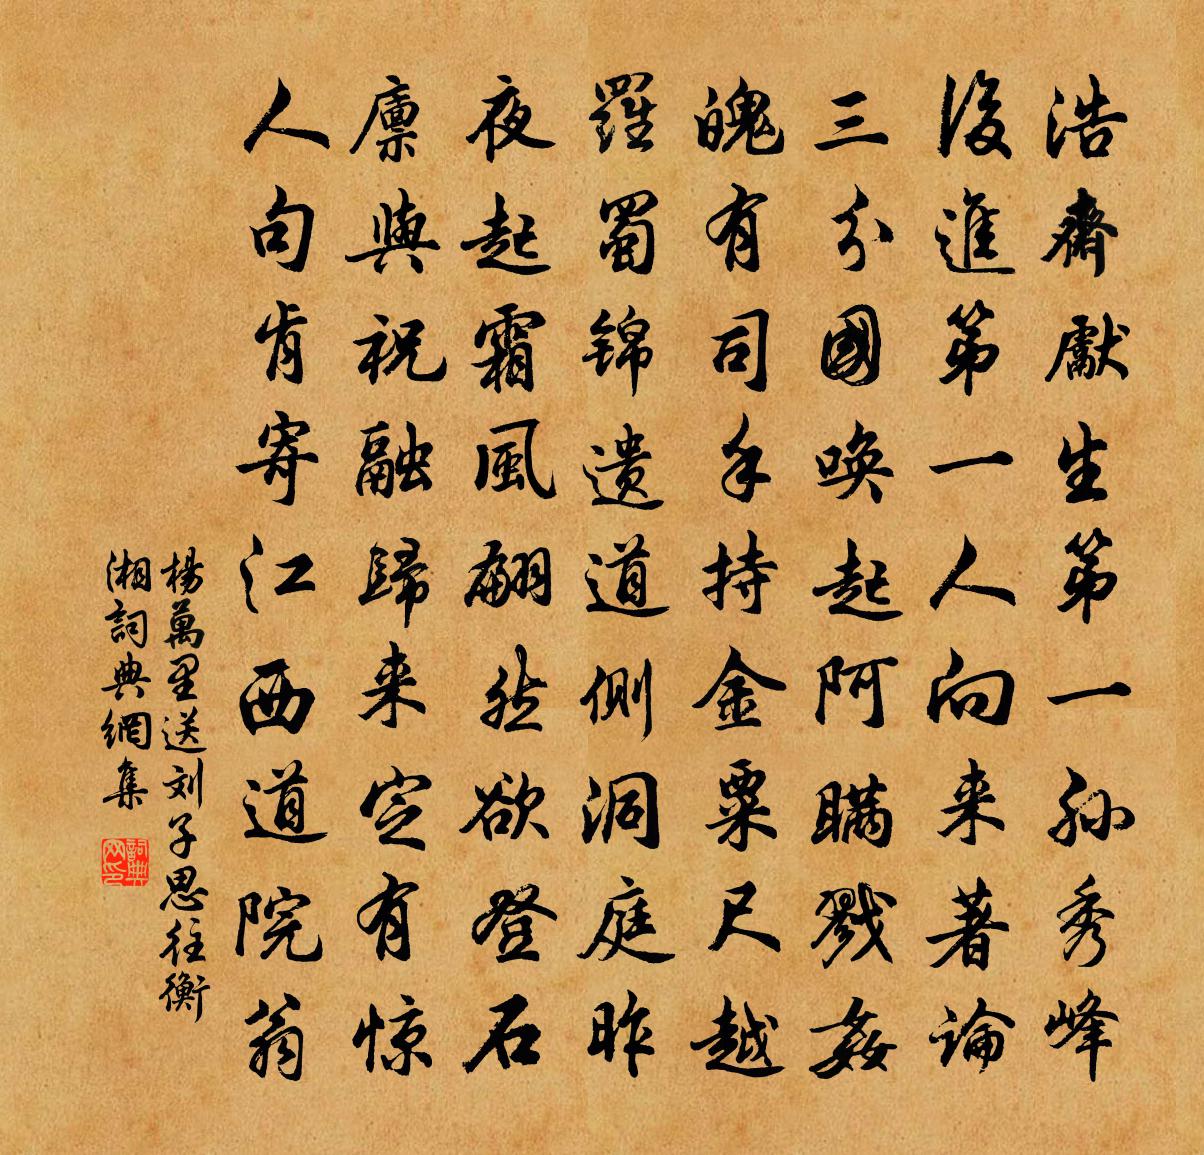 浩齋獻生第一孙秀峰
後進第一人向来著論
三分國唤起阿瞒戮姦
魄有司手持金粟尺越
羅蜀锦遗道側洞庭昨
夜起霜風翩然欲登石
廪與祝融歸来定有惊
人句肯寄江西道院翁
楊萬里送刘子思往衡
湘詞典網集
詞典
网印